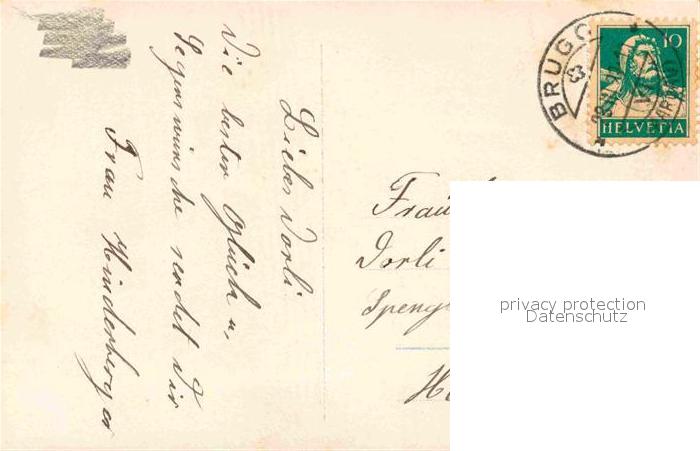 Liebes Dorli.
Die besten Glück u.
Segenswünsche sendet Dir
Frau Hinderberger
BRUGG
10
HELVETIA
Dorli
privacy protection
Datenschutz